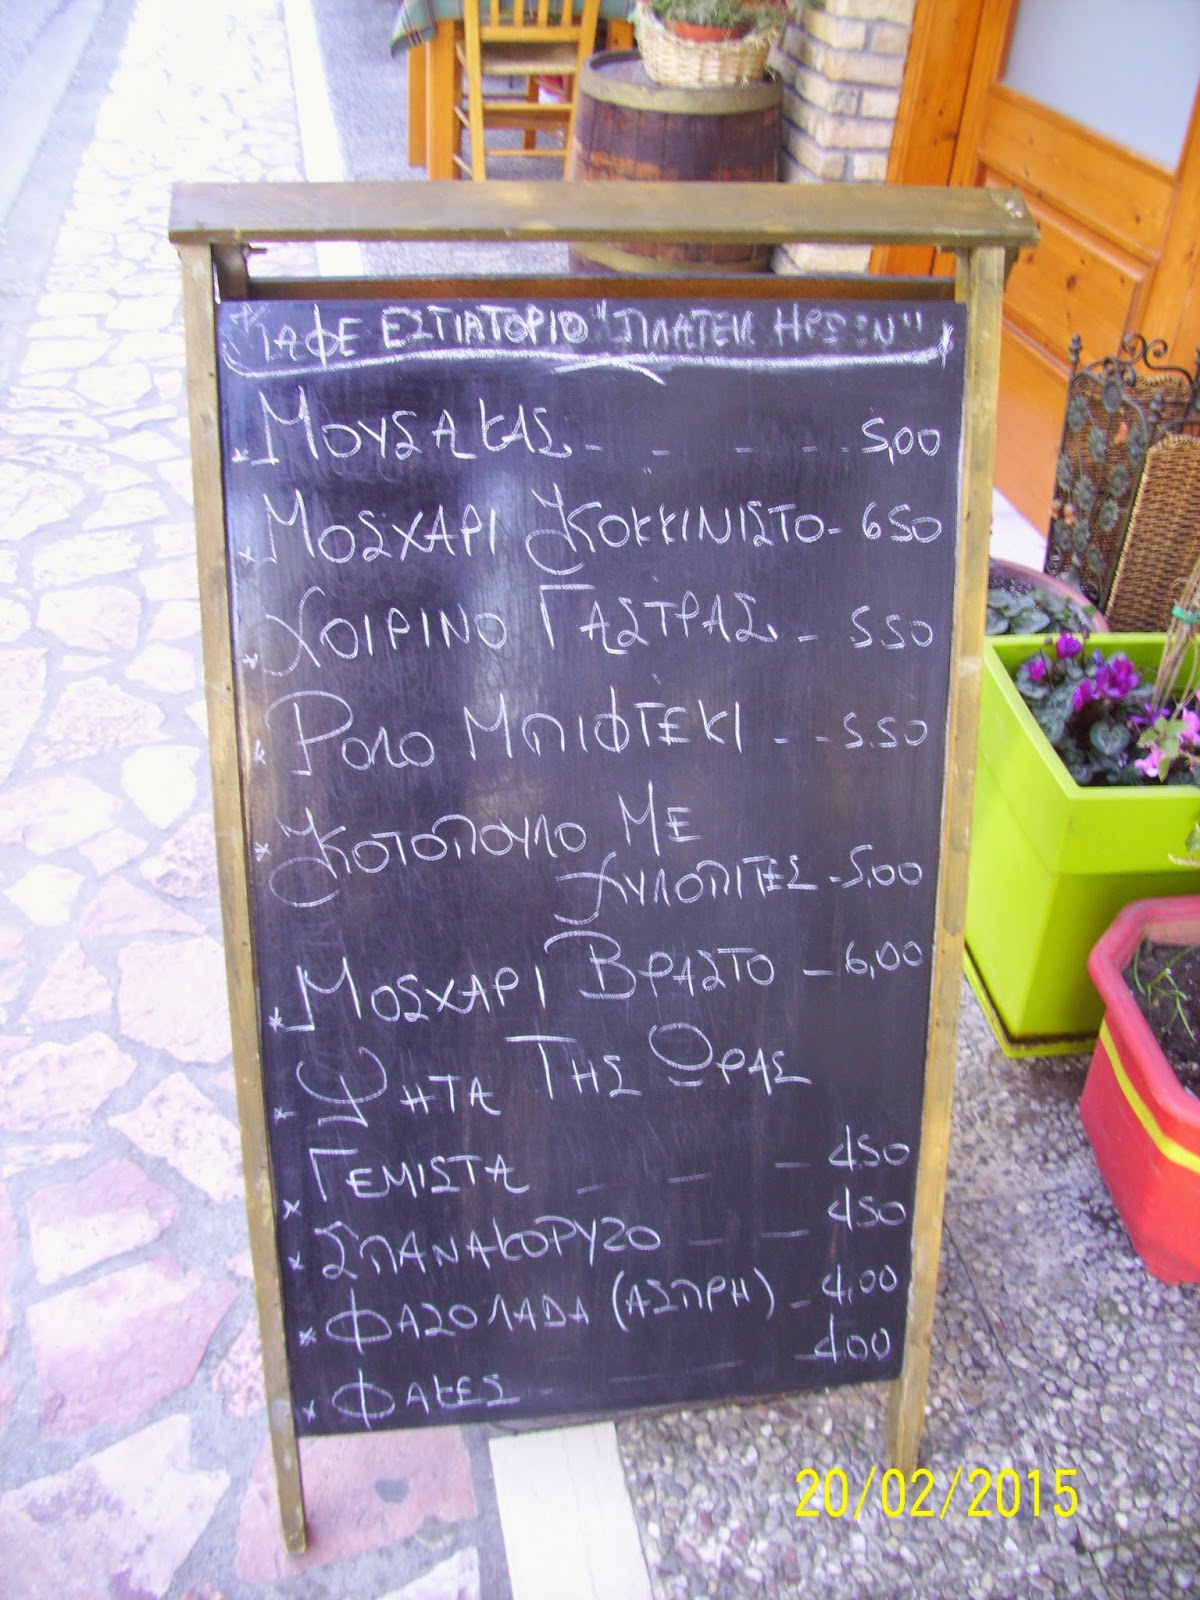 ΚΑΦΕ ΕΣΤΙΑΤΟΡΙΟ "ΠΛΑΤΕΙΑ ΗΡΩΩΝ"
* ΜΟΥΣΑΚΑΣ - - - - - 5,00
* ΜΟΣΧΑΡΙ ΚΟΚΚΙΝΙΣΤΟ - 650
* ΧΟΙΡΙΝΟ ΓΑΣΤΡΑΣ - 5.50
* ΡΟΛΟ ΜΠΙΦΤΕΚΙ - - 5.50
* ΚΟΤΟΠΟΥΛΟ ΜΕ
ΧΥΛΟΠΙΤΕΣ - 5,00
* ΜΟΣΧΑΡΙ ΒΡΑΣΤΟ - 6,00
* ΨΗΤΑ ΤΗΣ ΩΡΑΣ
* ΓΕΜΙΣΤΑ - - - 450
* ΣΠΑΝΑΚΟΡΥΖΟ - - 450
* ΦΑΣΟΛΑΔΑ (ΑΣΠΡΗ) - 4,00
* ΦΑΚΕΣ - - - - 400
20/02/2015